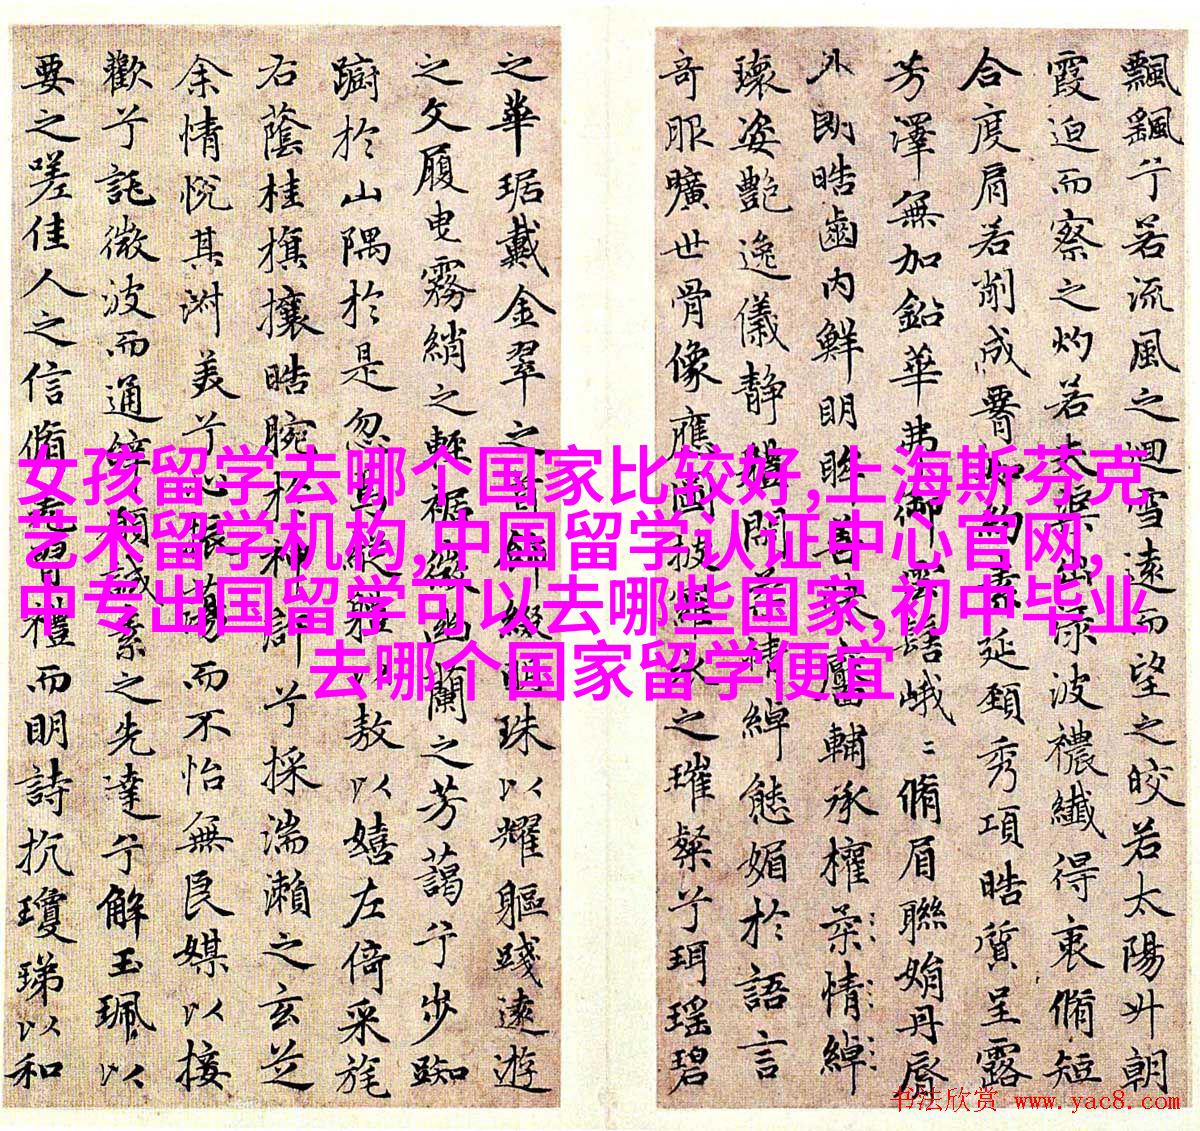 女孩留学去哪个国家比较好,上海斯芬克
艺术留学机构,中国留学认证中心官网,
中专出国留学可以去哪些国家,初中毕业
去哪个国家留学便宜
飄飖兮若流風之迴雪遠而望之皎若太陽升朝
霞迫而察之灼若夫蕖出淥波襛纖得衷脩短
合度肩若削成如約素延頸秀項皓質呈露
芳澤無加鉛華弗御雲髻峨〻脩眉聯娟丹脣
外朗皓齒內鮮明眸善睞靨輔承權柔情綽
瓌姿艷逸儀静體閑柔情綽態媚於語言
奇服曠世骨像應圖披羅衣之璀粲兮珥瑤碧
之華琚戴金翠之首飾綴明珠以耀軀踐遠遊
之文履曳霧綃之輕裾微幽蘭之芳藹兮步踟
蹰於山隅於是忽焉從體以敖以嬉左倚采旄
右蔭桂旗攘皓腕於神滸兮採湍瀨之玄芝
余情悅其淑美兮心振蕩而不怡無良媒以接
歡兮託微波而通辭願誠素之先達兮解玉珮以
要之嗟佳人之信脩羌習禮而明詩抗瓊珶以和
书法欣赏 www.yac8.com